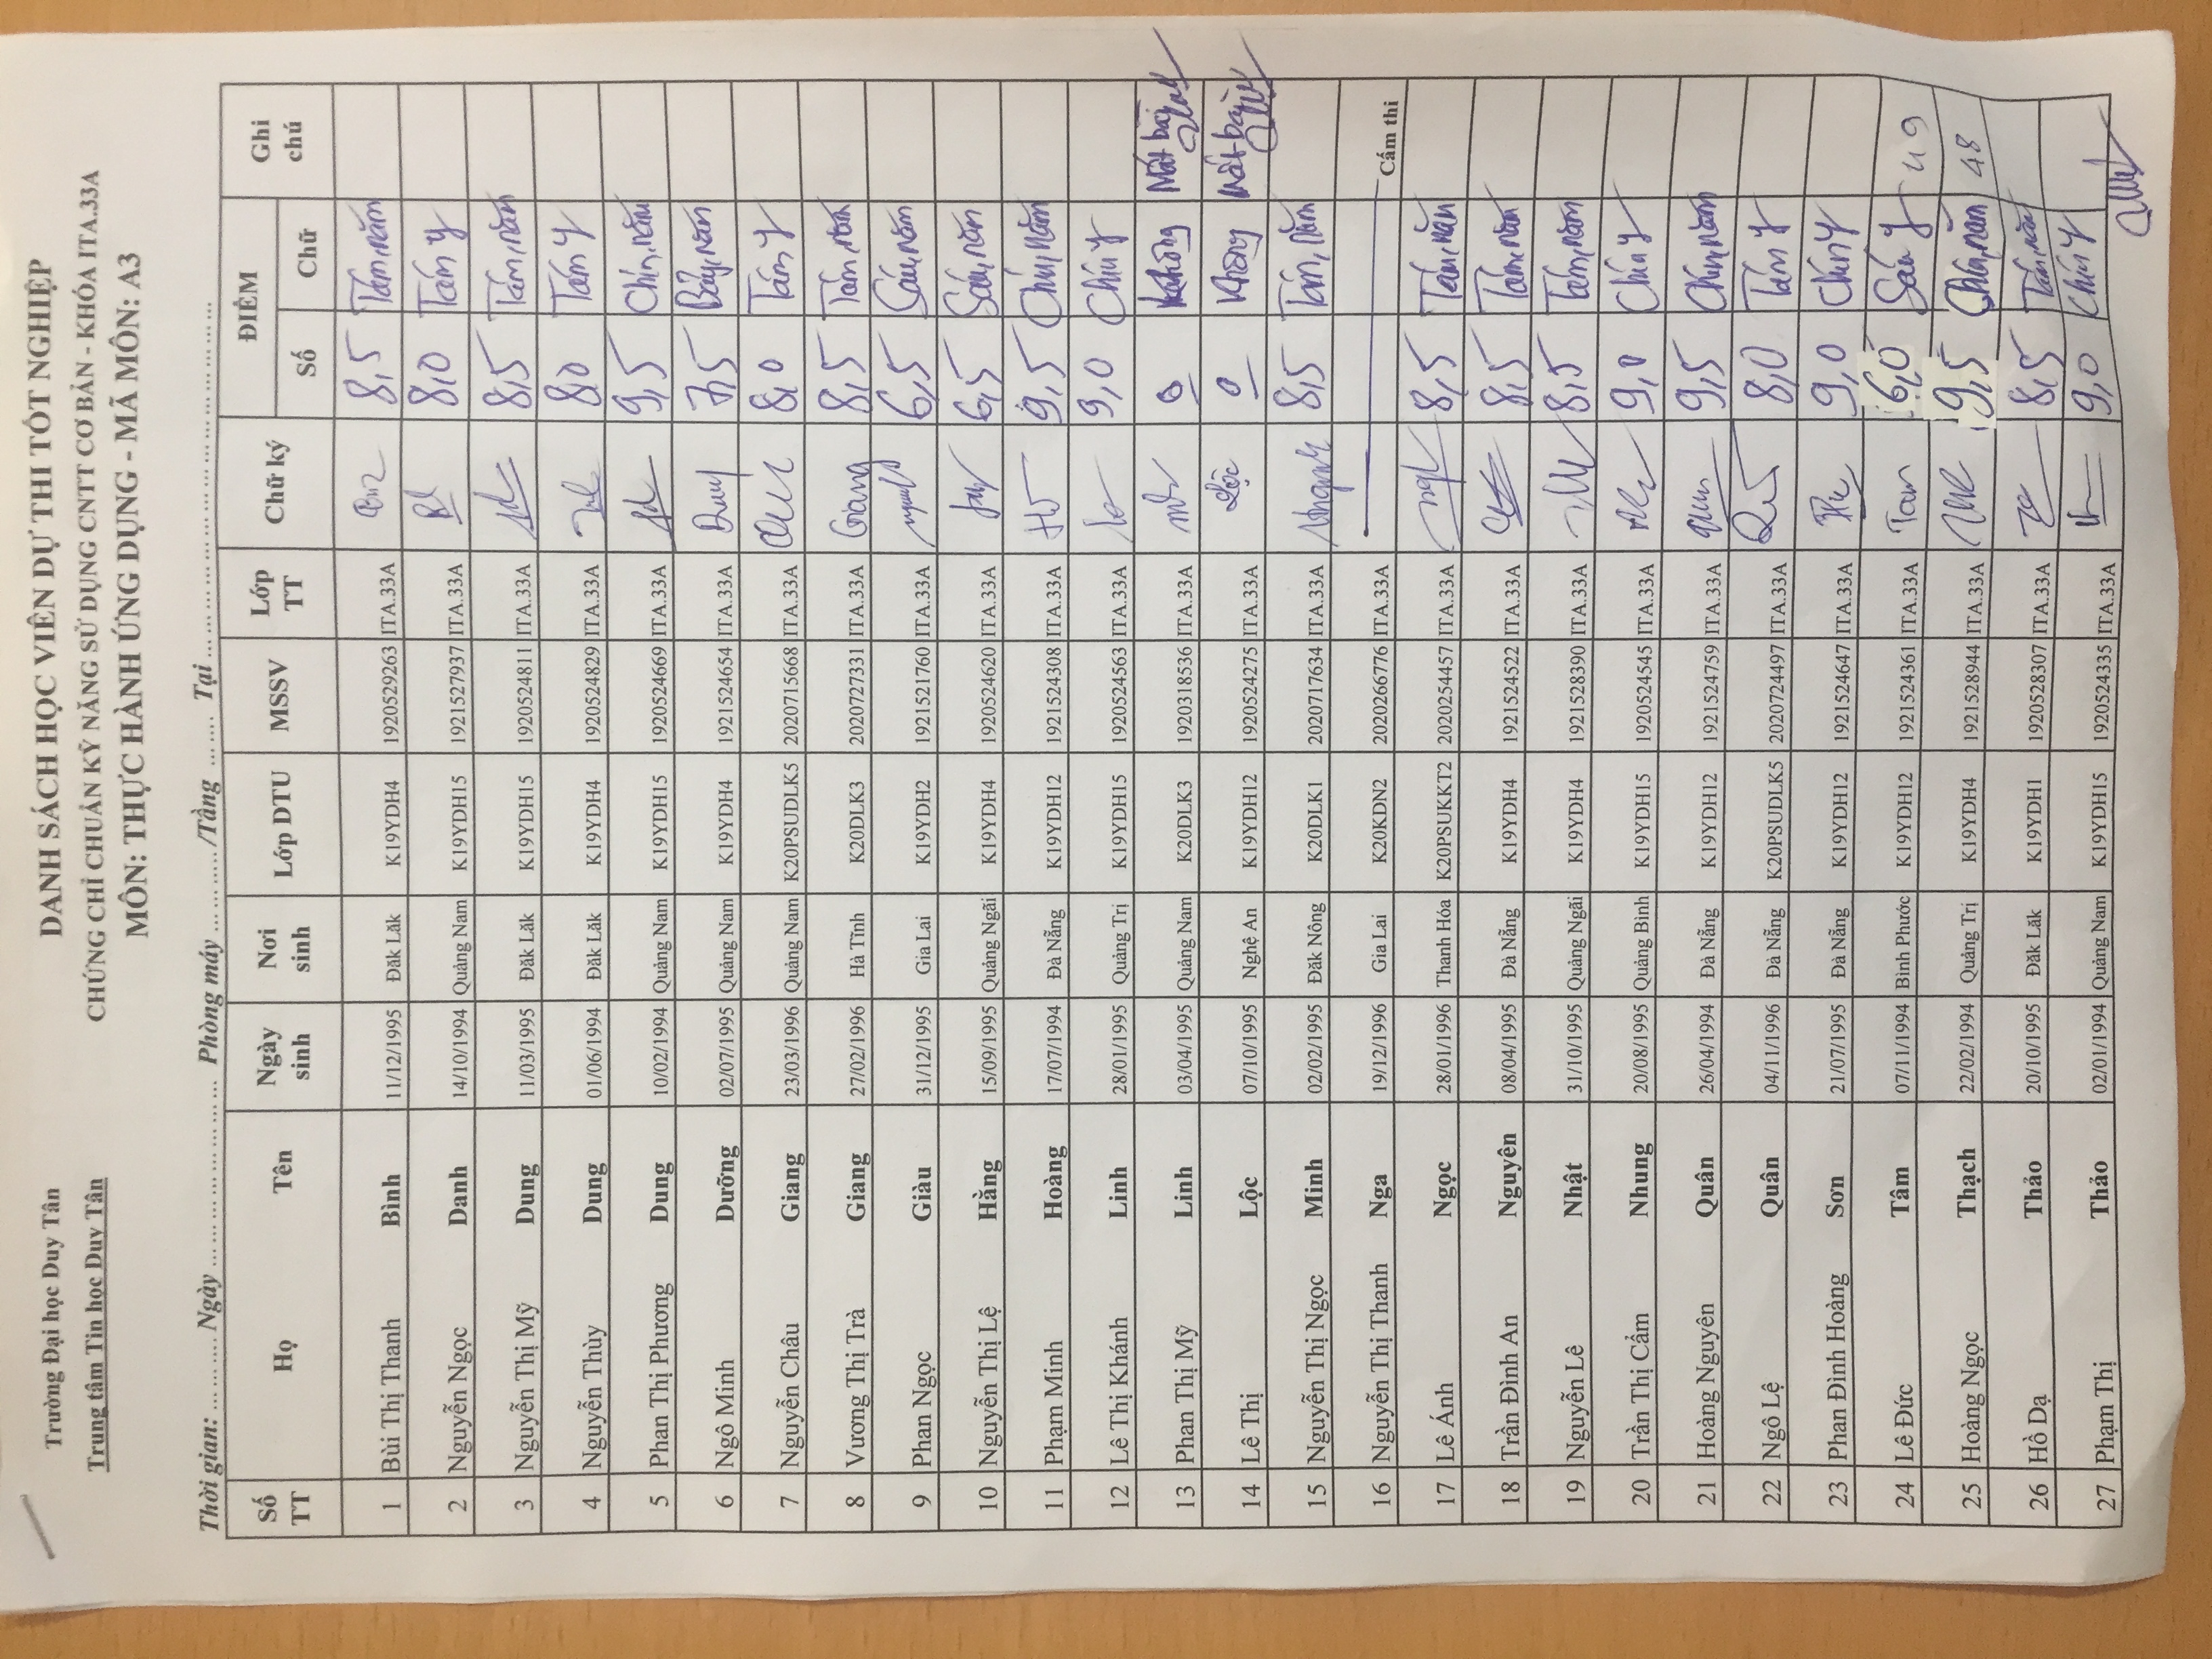 Trường Đại học Duy Tân
Trung tâm Tin học Duy Tân
DANH SÁCH HỌC VIÊN DỰ THI TỐT NGHIỆP
CHỨNG CHỈ CHUẨN KỸ NĂNG SỬ DỤNG CNTT CƠ BẢN - KHÓA ITA.33A
MÔN: THỰC HÀNH ỨNG DỤNG - MÃ MÔN: A3
Thời gian: ............ Ngày .............................. Phòng máy ............/Tầng ...... Tại ..............................
Số TT Họ Tên Ngày sinh Nơi sinh Lớp DTU MSSV Lớp TT Chữ ký ĐIỂM Ghi chú
Số Chữ
1 Bùi Thị Thanh Bình 11/12/1995 Đăk Lăk K19YDH4 1920529263 ITA.33A 8,5 Tám, năm
2 Nguyễn Ngọc Danh 14/10/1994 Quảng Nam K19YDH15 1921527937 ITA.33A 8,0 Tám y
3 Nguyễn Thị Mỹ Dung 11/03/1995 Đăk Lăk K19YDH15 1920524811 ITA.33A 8,5 Tám, năm
4 Nguyễn Thùy Dung 01/06/1994 Đăk Lăk K19YDH4 1920524829 ITA.33A 8,0 Tám y
5 Phan Thị Phương Dung 10/02/1994 Quảng Nam K19YDH15 1920524669 ITA.33A 9,5 Chín, năm
6 Ngô Minh Dưỡng 02/07/1995 Quảng Nam K19YDH4 1921524654 ITA.33A 7,5 Bảy, năm
7 Nguyễn Châu Giang 23/03/1996 Quảng Nam K20PSUDLK5 2020715668 ITA.33A 8,0 Tám y
8 Vương Thị Trà Giang 27/02/1996 Hà Tĩnh K20DLK3 2020727331 ITA.33A Giang 8,5 Tám, năm
9 Phan Ngọc Giàu 31/12/1995 Gia Lai K19YDH2 1921521760 ITA.33A 6,5 Sáu, năm
10 Nguyễn Thị Lệ Hằng 15/09/1995 Quảng Ngãi K19YDH4 1920524620 ITA.33A 6,5 Sáu, năm
11 Phạm Minh Hoàng 17/07/1994 Đà Nẵng K19YDH12 1921524308 ITA.33A 9,5 Chín, năm
12 Lê Thị Khánh Linh 28/01/1995 Quảng Trị K19YDH15 1920524563 ITA.33A 9,0 Chín y
13 Phan Thị Mỹ Linh 03/04/1995 Quảng Nam K20DLK3 1920318536 ITA.33A 0 Không Mất bài
14 Lê Thị Lộc 07/10/1995 Nghệ An K19YDH12 1920524275 ITA.33A Lộc 0 Không Mất bài
15 Nguyễn Thị Ngọc Minh 02/02/1995 Đăk Nông K20DLK1 2020717634 ITA.33A 8,5 Tám, năm
16 Nguyễn Thị Thanh Nga 19/12/1996 Gia Lai K20KDN2 2020266776 ITA.33A Cấm thi
17 Lê Ánh Ngọc 28/01/1996 Thanh Hóa K20PSUKKT2 2020254457 ITA.33A 8,5 Tám, năm
18 Trần Đình An Nguyên 08/04/1995 Đà Nẵng K19YDH4 1921524522 ITA.33A 8,5 Tám, năm
19 Nguyễn Lê Nhật 31/10/1995 Quảng Ngãi K19YDH4 1921528390 ITA.33A 8,5 Tám, năm
20 Trần Thị Cẩm Nhung 20/08/1995 Quảng Bình K19YDH15 1920524545 ITA.33A 9,0 Chín y
21 Hoàng Nguyên Quân 26/04/1994 Đà Nẵng K19YDH12 1921524759 ITA.33A 9,5 Chín, năm
22 Ngô Lệ Quân 04/11/1996 Đà Nẵng K20PSUDLK5 2020724497 ITA.33A 8,0 Tám y
23 Phan Đình Hoàng Sơn 21/07/1995 Đà Nẵng K19YDH12 1921524647 ITA.33A 9,0 Chín y
24 Lê Đức Tâm 07/11/1994 Bình Phước K19YDH12 1921524361 ITA.33A Tam 6,0 Sáu y 49
25 Hoàng Ngọc Thạch 22/02/1994 Quảng Trị K19YDH4 1921528944 ITA.33A 9,5 Chín, năm 48
26 Hồ Dạ Thảo 20/10/1995 Đăk Lăk K19YDH1 1920528307 ITA.33A 8,5 Tám, năm
27 Phạm Thị Thảo 02/01/1994 Quảng Nam K19YDH15 1920524335 ITA.33A 9,0 Chín y